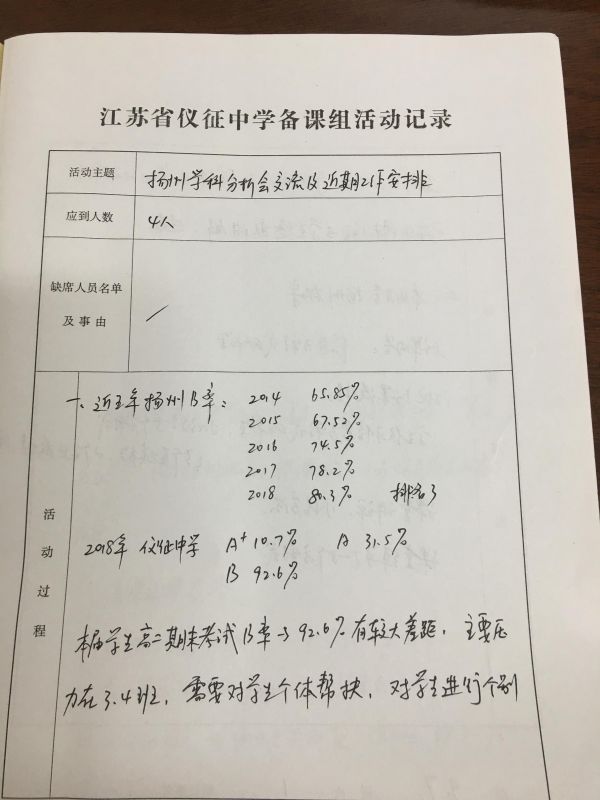 江苏省仪征中学备课组活动记录
活动主题
扬州学科分析会交流及近期工作安排
应到人数
4人
缺席人员名单
及事由
活动过程
一、近五年扬州B率: 2014 65.85%
2015 67.52%
2016 74.5%
2017 78.2%
2018 80.3% 排名3
2018年 仪征中学 A+ 10.7% A 31.5%
B 92.6%
本届学生高二期末考试B率与92.6%有较大差距.主要压
力在3.4班,需要对学生个体帮扶,对学生进行个别